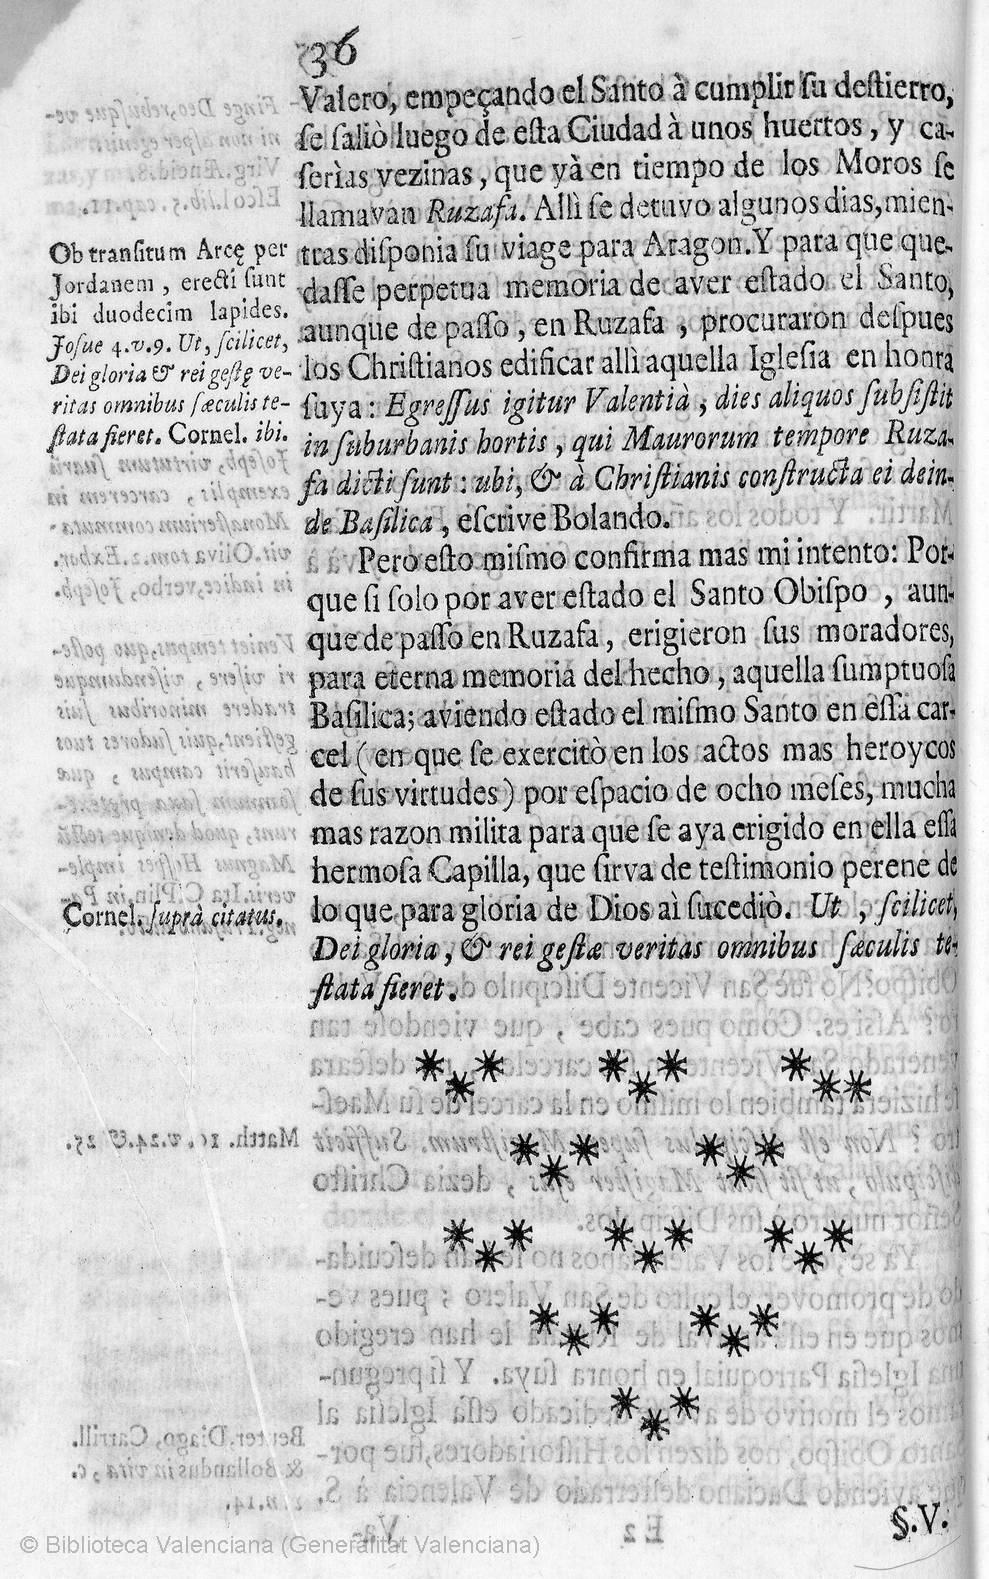 36
Valero, empeçando el Santo à cumplir su destierro,
se saliò luego de esta Ciudad à unos huertos, y ca-
serìas vezinas, que yà en tiempo de los Moros se
llamavan Ruzafa. Allì se detuvo algunos dias, mien-
tras disponia su viage para Aragon. Y para que que-
dasse perpetua memoria de aver estado el Santo,
aunque de passo, en Ruzafa, procuraron despues
los Christianos edificar allì aquella Iglesia en honra
suya: Egressus igitur Valentià, dies aliquos subsistit
in suburbanis hortis, qui Maurorum tempore Ruza-
fa dicti sunt: ubi, & à Christianis constructa ei dein-
de Basilica, escrive Bolando.
Pero esto mismo confirma mas mi intento: Por-
que si solo por aver estado el Santo Obispo, aun-
que de passo en Ruzafa, erigieron sus moradores,
para eterna memoria del hecho, aquella sumptuosa
Basilica; aviendo estado el mismo Santo en essa car-
cel (en que se exercitò en los actos mas heroycos
de sus virtudes) por espacio de ocho meses, mucha
mas razon milita para que se aya erigido en ella essa
hermosa Capilla, que sirva de testimonio perene de
lo que para gloria de Dios aì sucediò. Ut, scilicet,
Dei gloria, & rei gestæ veritas omnibus sæculis te-
stata fieret.
Ob transitum Arcę per
Jordanem, erecti sunt
ibi duodecim lapides.
Josue 4. v. 9. Ut, scilicet,
Dei gloria & rei gestę ve-
ritas omnibus sæculis te-
stata fieret. Cornel. ibi.
Cornel. suprà citatus.
§.V.
© Biblioteca Valenciana (Generalitat Valenciana)